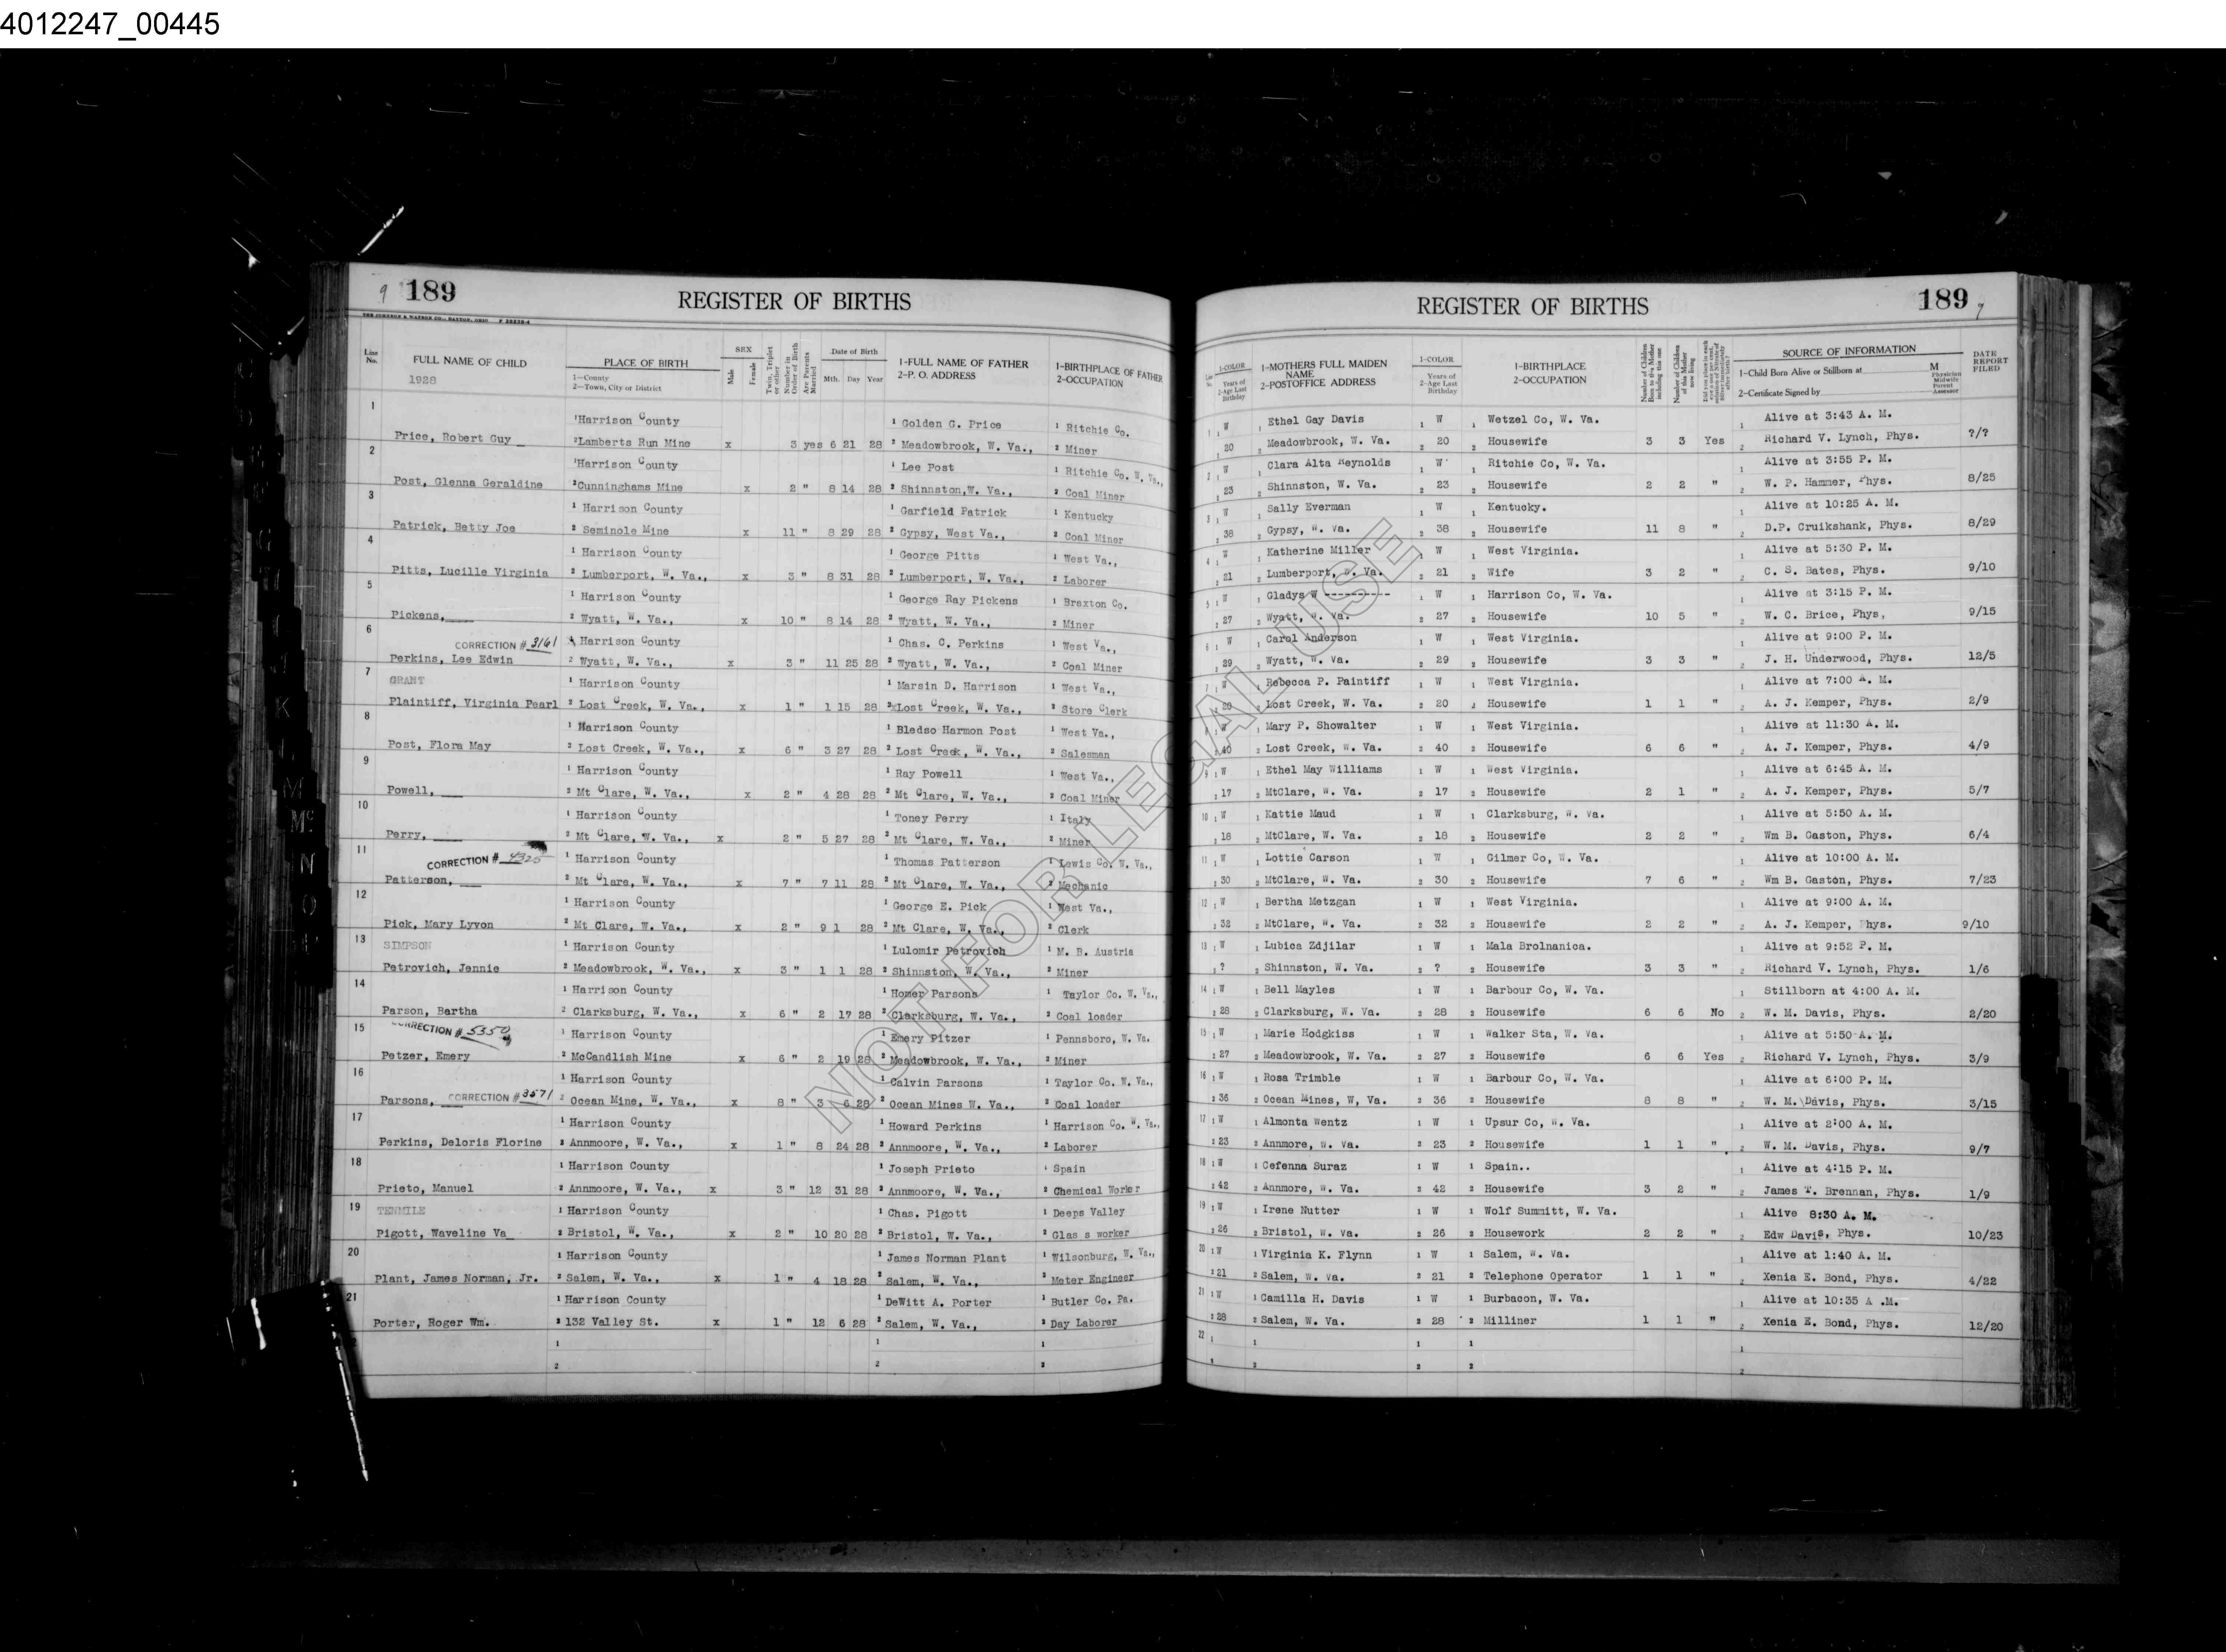 4012247_00445
9 189
REGISTER OF BIRTHS
THE JOHNSON & WATSON CO., DAYTON, OHIO
Line No. FULL NAME OF CHILD PLACE OF BIRTH SEX Date of Birth 1-FULL NAME OF FATHER 1-BIRTHPLACE OF FATHER
1928 1-County 2-Town, City or District Male Female Twin, Triplet or other Number in Order of Birth Are Parents Married Mth. Day Year 2-P. O. ADDRESS 2-OCCUPATION
1 1 Harrison County 1 Golden G. Price 1 Ritchie Co.
Price, Robert Guy 2 Lamberts Run Mine x 3 yes 6 21 28 2 Meadowbrook, W. Va., 2 Miner
2 1 Harrison County 1 Lee Post 1 Ritchie Co. W. Va.,
Post, Glenna Geraldine 2 Cunninghams Mine x 2 " 8 14 28 2 Shinnston, W. Va., 2 Coal Miner
3 1 Harrison County 1 Garfield Patrick 1 Kentucky
Patrick, Betty Joe 2 Seminole Mine x 11 " 8 29 28 2 Gypsy, West Va., 2 Coal Miner
4 1 Harrison County 1 George Pitts 1 West Va.,
Pitts, Lucille Virginia 2 Lumberport, W. Va., x 3 " 8 31 28 2 Lumberport, W. Va., 2 Laborer
5 1 Harrison County 1 George Ray Pickens 1 Braxton Co.
Pickens, 2 Wyatt, W. Va., x 10 " 8 14 28 2 Wyatt, W. Va., 2 Miner
6 CORRECTION # 3161 1 Harrison County 1 Chas. C. Perkins 1 West Va.,
Perkins, Lee Edwin 2 Wyatt, W. Va., x 3 " 11 25 28 2 Wyatt, W. Va., 2 Coal Miner
7 GRANT 1 Harrison County 1 Marsin D. Harrison 1 West Va.,
Plaintiff, Virginia Pearl 2 Lost Creek, W. Va., x 1 " 1 15 28 2 Lost Creek, W. Va., 2 Store Clerk
8 1 Harrison County 1 Bledso Harmon Post 1 West Va.,
Post, Flora May 2 Lost Creek, W. Va., x 6 " 3 27 28 2 Lost Creek, W. Va., 2 Salesman
9 1 Harrison County 1 Ray Powell 1 West Va.,
Powell, 2 Mt Clare, W. Va., x 2 " 4 28 28 2 Mt Clare, W. Va., 2 Coal Miner
10 1 Harrison County 1 Toney Perry 1 Italy
Perry, 2 Mt Clare, W. Va., x 2 " 5 27 28 2 Mt Clare, W. Va., 2 Miner
11 CORRECTION # 4325 1 Harrison County 1 Thomas Patterson 1 Lewis Co. W. Va.,
Patterson, 2 Mt Clare, W. Va., x 7 " 7 11 28 2 Mt Clare, W. Va., 2 Mechanic
12 1 Harrison County 1 George E. Pick 1 West Va.,
Pick, Mary Lyvon 2 Mt Clare, W. Va., x 2 " 9 1 28 2 Mt Clare, W. Va., 2 Clerk
13 SIMPSON 1 Harrison County 1 Lulomir Petrovich 1 M. R. Austria
Petrovich, Jennie 2 Meadowbrook, W. Va., x 3 " 1 1 28 2 Shinnston, W. Va., 2 Miner
14 1 Harrison County 1 Homer Parsons 1 Taylor Co. W. Va.,
Parson, Bertha 2 Clarksburg, W. Va., x 6 " 2 17 28 2 Clarksburg, W. Va., 2 Coal loader
15 CORRECTION # 5350 1 Harrison County 1 Emery Pitzer 1 Pennsboro, W. Va.
Petzer, Emery 2 McCandlish Mine x 6 " 2 19 28 2 Meadowbrook, W. Va., 2 Miner
16 1 Harrison County 1 Calvin Parsons 1 Taylor Co. W. Va.,
Parsons, CORRECTION # 3571 2 Ocean Mine, W. Va., x 8 " 3 6 28 2 Ocean Mines W. Va., 2 Coal loader
17 1 Harrison County 1 Howard Perkins 1 Harrison Co. W. Va.,
Perkins, Deloris Florine 2 Annmoore, W. Va., x 1 " 8 24 28 2 Annmoore, W. Va., 2 Laborer
18 1 Harrison County 1 Joseph Prieto 1 Spain
Prieto, Manuel 2 Annmoore, W. Va., x 3 " 12 31 28 2 Annmoore, W. Va., 2 Chemical Worker
19 TENMILE 1 Harrison County 1 Chas. Pigott 1 Deeps Valley
Pigott, Waveline Va 2 Bristol, W. Va., x 2 " 10 20 28 2 Bristol, W. Va., 2 Glas s worker
20 1 Harrison County 1 James Norman Plant 1 Wilsonburg, W. Va.,
Plant, James Norman, Jr. 2 Salem, W. Va., x 1 " 4 18 28 2 Salem, W. Va., 2 Meter Engineer
21 1 Harrison County 1 DeWitt A. Porter 1 Butler Co. Pa.
Porter, Roger Wm. 2 132 Valley St. x 1 " 12 6 28 2 Salem, W. Va., 2 Day Laborer
1 1 1
2 2 2
REGISTER OF BIRTHS
189 9
1-COLOR 1-MOTHERS FULL MAIDEN NAME 1-COLOR 1-BIRTHPLACE SOURCE OF INFORMATION DATE REPORT FILED
Years of 2-Age Last Birthday 2-POSTOFFICE ADDRESS Years of 2-Age Last Birthday 2-OCCUPATION Number of Children Born to this Mother including this one Number of Children of this Mother now living 1-Child Born Alive or Stillborn at M
2-Certificate Signed by Physician Midwife Parent Assessor
1 1 W 1 Ethel Gay Davis 1 W 1 Wetzel Co, W. Va. 1 Alive at 3:43 A. M.
2 20 2 Meadowbrook, W. Va. 2 20 2 Housewife 3 3 Yes 2 Richard V. Lynch, Phys. ?/?
2 1 W 1 Clara Alta Reynolds 1 W 1 Ritchie Co, W. Va. 1 Alive at 3:55 P. M.
2 23 2 Shinnston, W. Va. 2 23 2 Housewife 2 2 " 2 W. P. Hammer, Phys. 8/25
3 1 W 1 Sally Everman 1 W 1 Kentucky. 1 Alive at 10:25 A. M.
2 38 2 Gypsy, W. Va. 2 38 2 Housewife 11 8 " 2 D.P. Cruikshank, Phys. 8/29
4 1 W 1 Katherine Miller 1 W 1 West Virginia. 1 Alive at 5:30 P. M.
2 21 2 Lumberport, W. Va. 2 21 2 Wife 3 2 " 2 C. S. Bates, Phys. 9/10
5 1 W 1 Gladys W ---------- 1 W 1 Harrison Co, W. Va. 1 Alive at 3:15 P. M.
2 27 2 Wyatt, W. Va. 2 27 2 Housewife 10 5 " 2 W. C. Brice, Phys, 9/15
6 1 W 1 Carol Anderson 1 W 1 West Virginia. 1 Alive at 9:00 P. M.
2 29 2 Wyatt, W. Va. 2 29 2 Housewife 3 3 " 2 J. H. Underwood, Phys. 12/5
7 1 W 1 Rebecca P. Paintiff 1 W 1 West Virginia. 1 Alive at 7:00 A. M.
2 20 2 Lost Creek, W. Va. 2 20 2 Housewife 1 1 " 2 A. J. Kemper, Phys. 2/9
8 1 W 1 Mary P. Showalter 1 W 1 West Virginia. 1 Alive at 11:30 A. M.
2 40 2 Lost Creek, W. Va. 2 40 2 Housewife 6 6 " 2 A. J. Kemper, Phys. 4/9
9 1 W 1 Ethel May Williams 1 W 1 West Virginia. 1 Alive at 6:45 A. M.
2 17 2 MtClare, W. Va. 2 17 2 Housewife 2 1 " 2 A. J. Kemper, Phys. 5/7
10 1 W 1 Kattie Maud 1 W 1 Clarksburg, W. Va. 1 Alive at 5:50 A. M.
2 18 2 MtClare, W. Va. 2 18 2 Housewife 2 2 " 2 Wm B. Gaston, Phys. 6/4
11 1 W 1 Lottie Carson 1 W 1 Gilmer Co, W. Va. 1 Alive at 10:00 A. M.
2 30 2 MtClare, W. Va. 2 30 2 Housewife 7 6 " 2 Wm B. Gaston, Phys. 7/23
12 1 W 1 Bertha Metzgan 1 W 1 West Virginia. 1 Alive at 9:00 A. M.
2 32 2 MtClare, W. Va. 2 32 2 Housewife 2 2 " 2 A. J. Kemper, Phys. 9/10
13 1 W 1 Lubica Zdjilar 1 W 1 Mala Brolnanica. 1 Alive at 9:52 P. M.
2 ? 2 Shinnston, W. Va. 2 ? 2 Housewife 3 3 " 2 Richard V. Lynch, Phys. 1/6
14 1 W 1 Bell Mayles 1 W 1 Barbour Co, W. Va. 1 Stillborn at 4:00 A. M.
2 28 2 Clarksburg, W. Va. 2 28 2 Housewife 6 6 No 2 W. M. Davis, Phys. 2/20
15 1 W 1 Marie Hodgkiss 1 W 1 Walker Sta, W. Va. 1 Alive at 5:50 A. M.
2 27 2 Meadowbrook, W. Va. 2 27 2 Housewife 6 6 Yes 2 Richard V. Lynch, Phys. 3/9
16 1 W 1 Rosa Trimble 1 W 1 Barbour Co, W. Va. 1 Alive at 6:00 P. M.
2 36 2 Ocean Mines, W, Va. 2 36 2 Housewife 8 8 " 2 W. M. Davis, Phys. 3/15
17 1 W 1 Almonta Wentz 1 W 1 Upsur Co, W. Va. 1 Alive at 2:00 A. M.
2 23 2 Annmore, W. Va. 2 23 2 Housewife 1 1 " 2 W. M. Davis, Phys. 9/7
18 1 W 1 Cefenna Suraz 1 W 1 Spain.. 1 Alive at 4:15 P. M.
2 42 2 Annmore, W. Va. 2 42 2 Housewife 3 2 " 2 James T. Brennan, Phys. 1/9
19 1 W 1 Irene Nutter 1 W 1 Wolf Summitt, W. Va. 1 Alive 8:30 A. M.
2 26 2 Bristol, W. Va. 2 26 2 Housework 2 2 " 2 Edw Davis, Phys. 10/23
20 1 W 1 Virginia K. Flynn 1 W 1 Salem, W. Va. 1 Alive at 1:40 A. M.
2 21 2 Salem, W. Va. 2 21 2 Telephone Operator 1 1 " 2 Xenia E. Bond, Phys. 4/22
21 1 W 1 Camilla H. Davis 1 W 1 Burbacon, W. Va. 1 Alive at 10:35 A .M.
2 28 2 Salem, W. Va. 2 28 2 Milliner 1 1 " 2 Xenia E. Bond, Phys. 12/20
22 1 1 1 1 1
2 2 2 2 2
NOT FOR LEGAL USE